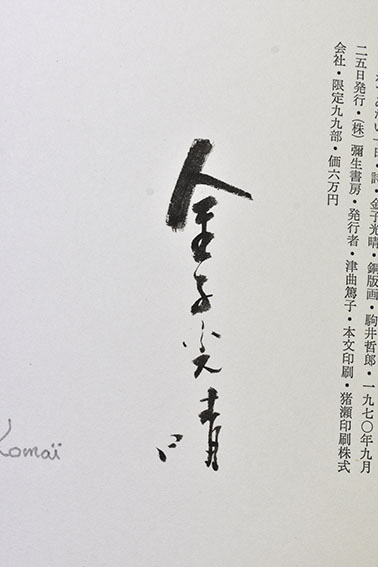 一日・詩・金子光晴・銅版画・駒井哲郎・一九七〇年九月
二五日発行・(株)彌生書房・発行者・津曲篤子・本文印刷・猪瀬印刷株式
会社・限定九九部・価六万円
金子光晴
Komaï